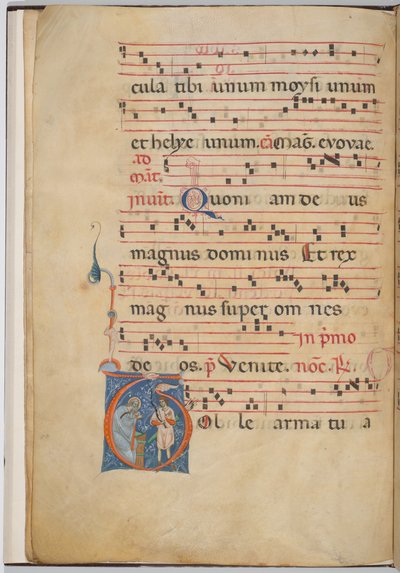 cula tibi unum moysi unum
et helye unum. cā mag̅. evovae.
ad
mat̅.
invit̅. Quoni am de us
magnus domi nus Et rex
mag nus super om nes
In p̄mo
de os. p̄ Venite. noc̄e. R
Tol le arma tu a